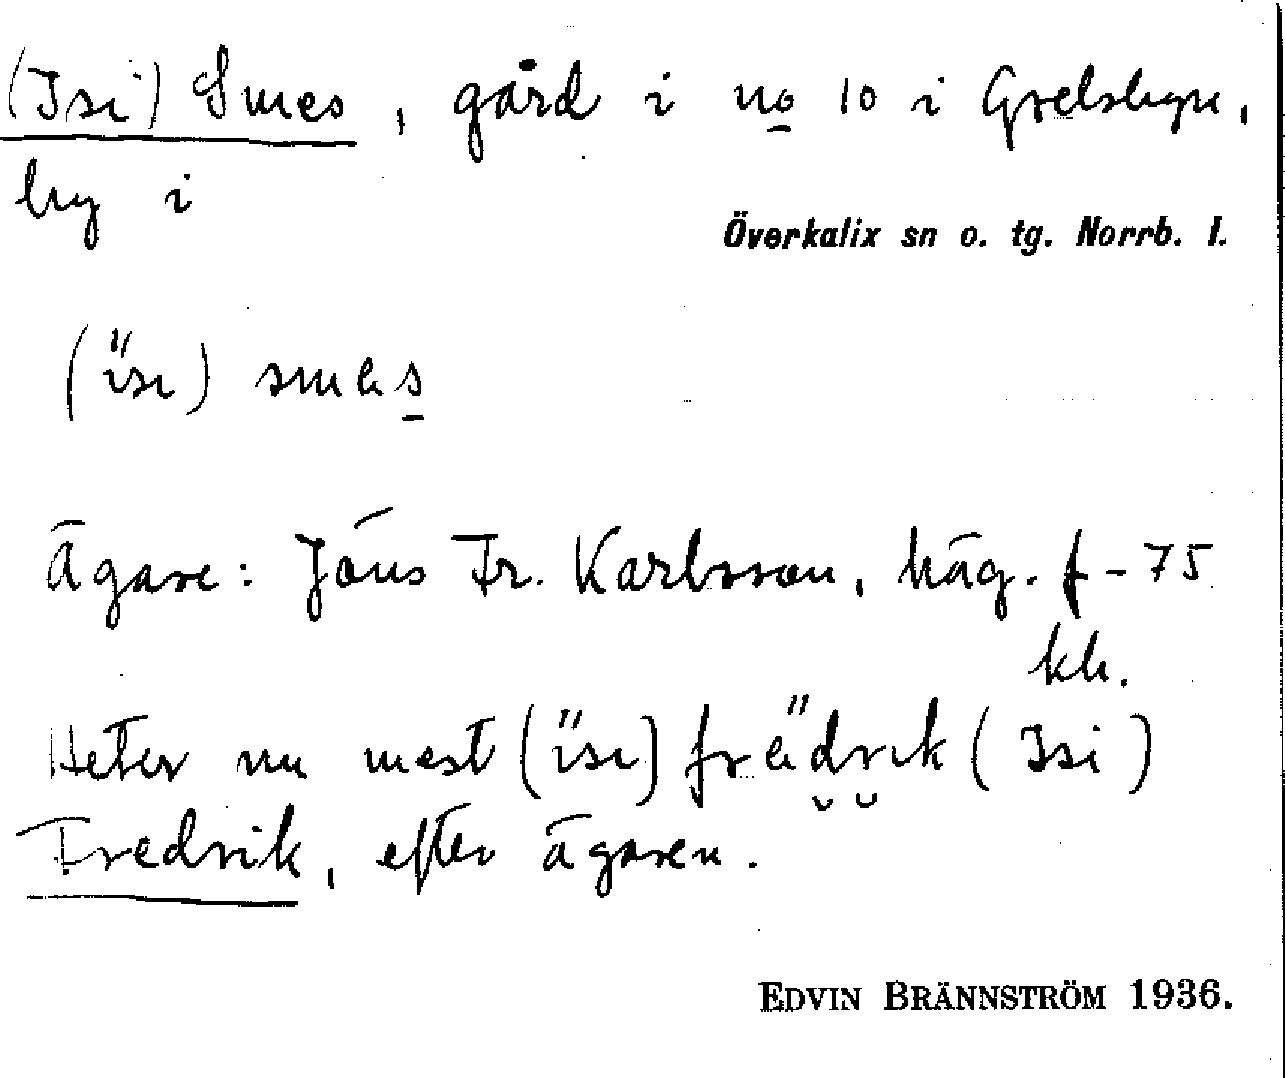 (Isi) Smes, gård i no 10 i Grelsbyn,
by i
Överkalix sn o. tg. Norrb. l.
(ïsı) smes
Ägare: Jöns Fr. Karlsson, häg. f -75
kh.
Heter nu mest (ïsı) fredrık (Isi)
Fredrik, efter ägaren.
EDVIN BRÄNNSTRÖM 1936.